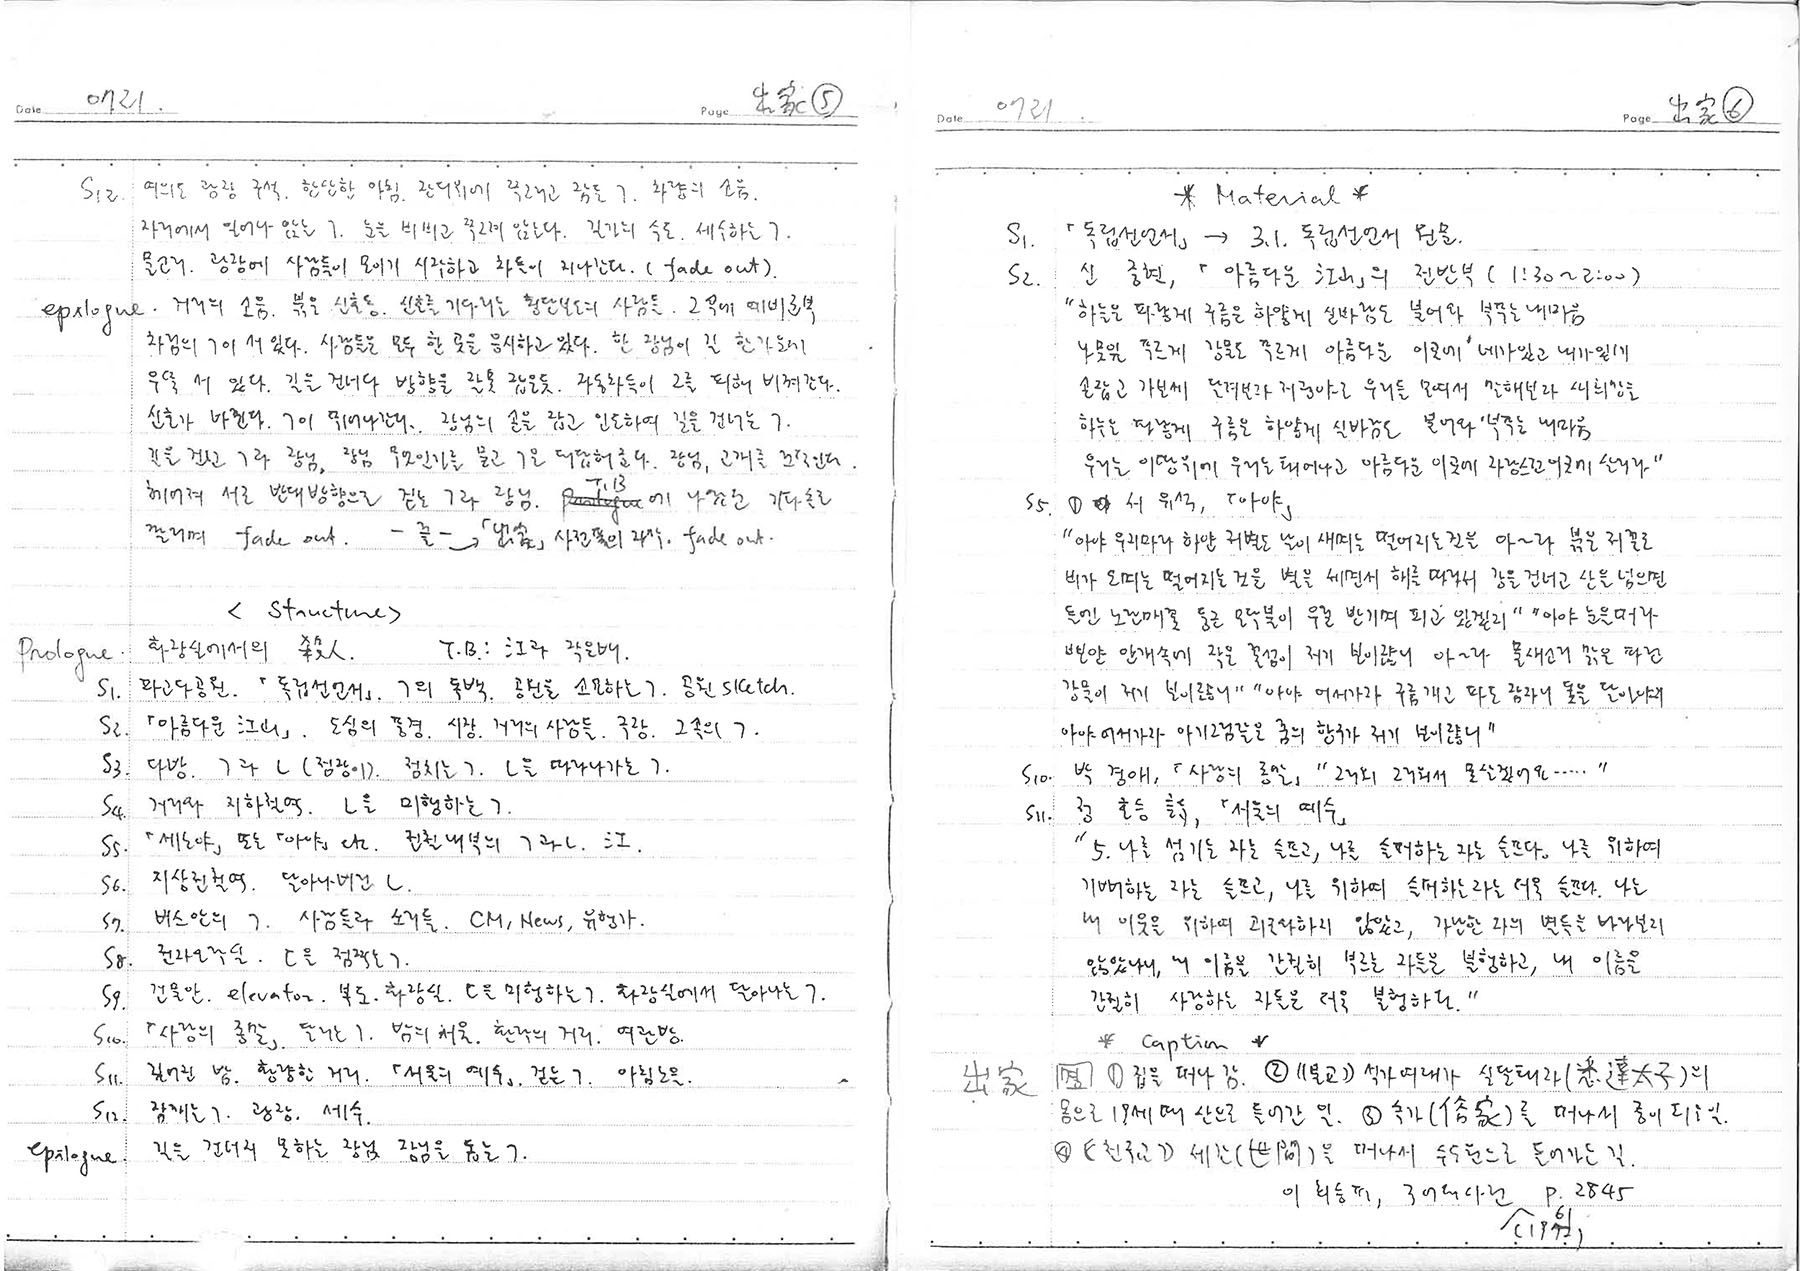 Date 0721.
Page 出家 ⑤
S12. 여의도 광장 구석. 한산한 아침. 잔디위에 쪼그리고 잠든 ㄱ. 차량의 소음.
자리에서 일어나 앉는 ㄱ. 눈을 비비고 쪼그려 앉는다. 길가의 수도. 세수하는 ㄱ.
물고기. 광장에 사람들이 모이기 시작하고 차들이 지나간다. (fade out).
epilogue. 거리의 소음. 붉은 신호등. 신호를 기다리는 횡단보도의 사람들. 그 곁에 예비군복
차림의 ㄱ이 서 있다. 사람들은 모두 한 곳을 응시하고 있다. 한 장님이 길 한가운데
우뚝 서 있다. 길을 건너다 방향을 잘못 잡은듯. 자동차들이 그를 피해 비켜간다.
신호가 바뀐다. ㄱ이 뛰어나간다. 장님의 손을 잡고 인도하여 길을 건너는 ㄱ.
길을 건넌 ㄱ과 장님. 장님 무엇인가를 묻고 ㄱ은 대답해 준다. 장님, 고개를 끄덕인다.
헤어져 서로 반대방향으로 걷는 ㄱ과 장님. T.B에 나왔던
fade out. - 끝 - fade out.
< Structure >
Prologue. 화장실에서의 殺人. T.B.: 江과 작은배.
S1. 파고다공원. 「독립선언서」. ㄱ의 독백. 공원을 소요하는 ㄱ. 공원 sketch.
S2. 「아름다운 江山」. 도심의 풍경. 시장. 거리의 사람들. 극장. 그속의 ㄱ.
S3. 다방. ㄱ과 ㄴ (점장이). 점치는 ㄱ. ㄴ을 따라나가는 ㄱ.
S4. 거리와 지하철역. ㄴ을 미행하는 ㄱ.
S5. 「세노야」 또는 「아야」 etc. 전철내부의 ㄱ과 ㄴ. 江.
S6. 지상전철역. 달아나버린 ㄴ.
S7. 버스안의 ㄱ. 사람들과 소리들. CM, News, 유행가.
S8. 전자오락실. ㄷ을 점찍는 ㄱ.
S9. 건물안. elevator. 복도. 화장실. ㄷ을 미행하는 ㄱ. 화장실에서 달아나는 ㄱ.
S10. 「사랑의 종말」. 달리는 ㄱ. 밤의 서울. 환락의 거리. 여관방.
S11. 깊어진 밤. 황량한 거리. 「서울의 예수」. 걷는 ㄱ. 아침노을.
S12. 잠깨는 ㄱ. 광장. 세수.
epilogue. 길을 건너지 못하는 장님. 장님을 돕는 ㄱ.
Date 0721.
Page 出家 ⑥
* Material *
S1. 「독립선언서」 → 3.1. 독립선언서 원문.
S2. 신 중현, 「아름다운 江山」의 전반부 (1:30~2:00)
"하늘은 파랗게 구름은 하얗게 실바람도 불어와 부푸는 내마음
나뭇잎 푸르게 강물도 푸르게 아름다운 이곳에 네가있고 내가있네
손잡고 가보세 달려보자 저광야로 우리들 모여서 말해보자 새희망을
하늘은 파랗게 구름은 하얗게 실바람도 불어와 부푸는 내마음
우리는 이땅위에 우리는 태어나고 아름다운 이곳에 자랑스런 이곳에 살리라"
S5. ① 서 유석, 「아야」
"아야 우리마라 하얀 저별도 날이 새면은 떨어지는 것을 아~라 붉은 저꽃도
비가 오며는 떨어지는 것을 별을 세면서 해를 따라서 강을 건너고 산을 넘으면
들엔 노란매꽃 둥근 모닥불이 우릴 반기며 피고 있겠지" "아야 눈을떠라
뽀얀 안개속에 작은 꽃섬이 저기 보이잖니 아~라 물새소리 맑은 파란
강물이 저기 보이잖니" "아야 어서가라 구름개고 파도 잠자니 돛을 달아야지
아야 어서가라 아기 꿈의 항구가 저기 보이잖니"
S10. 박 경애, 「사랑의 종말」 "외로워 외로워서 못살겠어요....."
S11. 정 호승 詩, 「서울의 예수」
"5. 나를 섬기는 자는 슬프고, 나를 슬퍼하는 자는 슬프다. 나를 위하여
기뻐하는 자는 슬프고, 나를 위하여 슬퍼하는 자는 더욱 슬프다. 나는
내 이웃을 위하여 괴로와하지 않았고, 가난한 자의 별들을 바라보지
않았나니, 내 이름을 간절히 부르는 자들은 불행하고, 내 이름을
간절히 사랑하는 자들은 더욱 불행하다."
* Caption *
出家 ① 집을 떠나 감. ② (불교) 석가여래가 실달태자(悉達太子)의
몸으로 19세 때 산으로 들어간 일. ③ 속가(俗家)를 떠나서 중이 되는 일.
④ (천주교) 세간(世間)을 떠나서 수도원으로 들어가는 길.
이 희승 편, 국어대사전 p. 2845